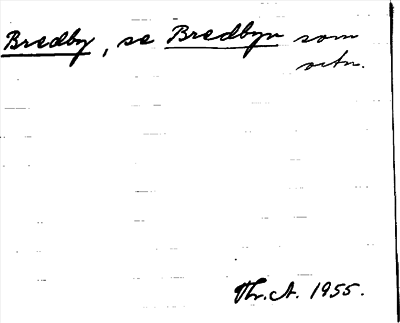 Bredby, se Bredbyn som
ortn.
Thr.A. 1955.